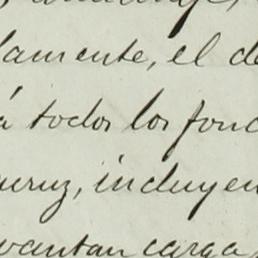 lamente, el de
á todos los fond
cruz, incluyen
vantan carga